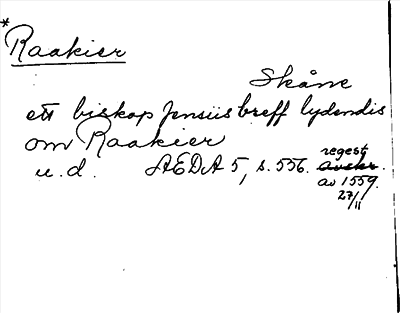 *
Raakier
Skåne
ett biskop Jensiis breff lydendis
om Raakier
u.d. AEDA 5, s. 556. regest
av 1559.
27/11